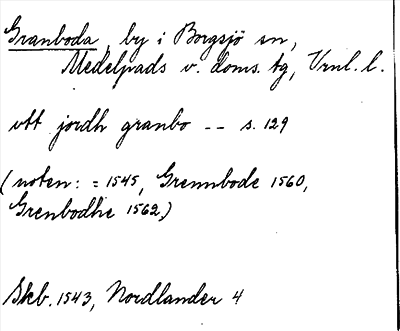 Granboda, by i Borgsjö sn,
Medelpads v. doms. tg, Vrnl. l.
vtt jordh granbo -- s. 129
(noten: = 1545, Grennbode 1560,
Grenbodhe 1562)
Skb. 1543, Nordlander 4